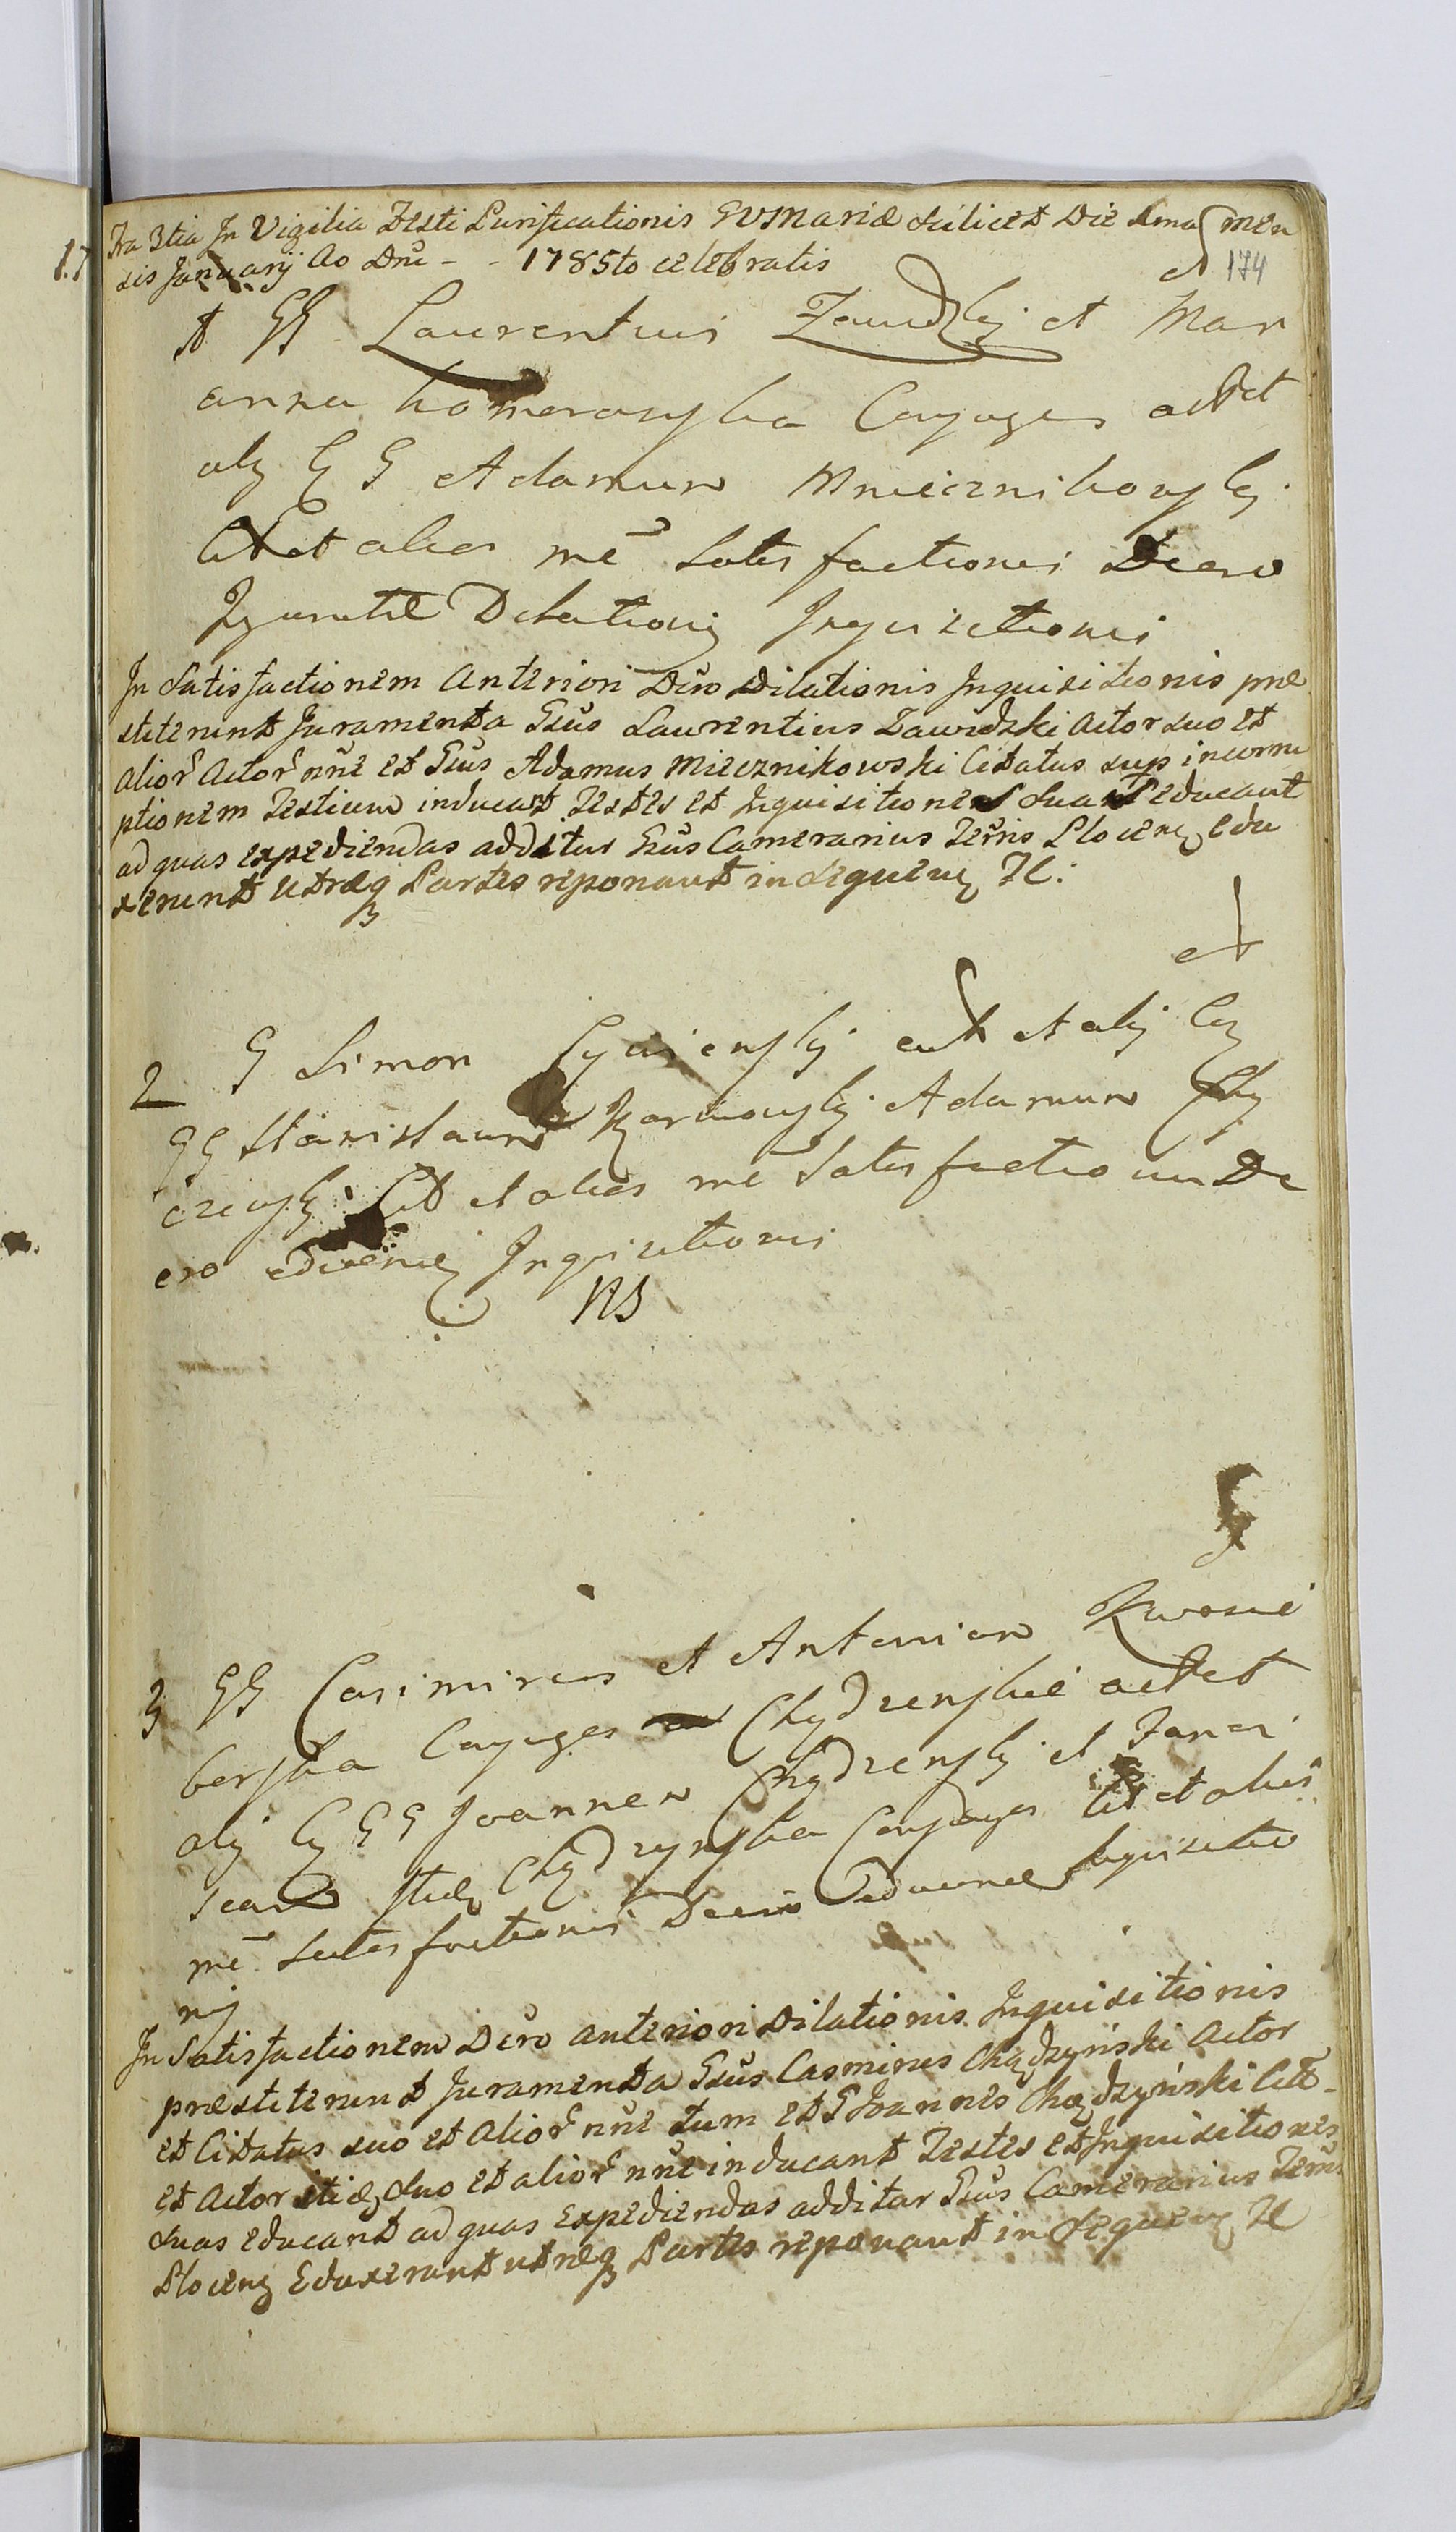 Fra 3tia In Vigilia Festi Purificationis GVMariæ scilicet Die 1ma men
sis Januarij Ao Dni - - 1785to celebratis
174
GG Laurentius Zawidzkij et Mari
anna Komorosyka Conjuges act et
alij C G G Adamum Mniecznikowskij
Citt et alios me Satisfactionis Decro
Juratæ Delationij Inquisitionis
In Satisfactionem Anteriori Dcro Dilationis Inquisitionis præ
stiterunt Juramenta Gsus Laurentius Zawidzki Actor suo et
alior Actor nne et Gsus Adamus Miecznikowski Citatus sup incorru
ptionem Testium inducant Testes et Inquisitiones suas educant
ad quas expediendas additur Gsus Camerarius Terris Plocen, Edu
xerunt Utræq Partes reponant in sequen Tc:
et
2 G Simon act et alij C
GG Stanislaum Karwowskij Adamum
Citt et alios me Satisfactionis De
cro educenæ Inquisitionis
NS
3 GG Casimirus et Antonian Kwasie
borska Conjuges Chądzenskie act et
alij C G G Joannem Chądzenskij et Franci
scam Chądzynska Conjuges Citt et alios
me Satisfactionis Decro Educenæ Inquisitio
nij
In Satisfactionem Dcro anteriori Dilationis Inquisitionis
præstiterunt Juramenta Gsus Casmirus Chądzyński Actor
et Citatus suo et alior nne tum et G Joannes Chądzyński Citt
et Actor suo et alior nne inducant Testes et Inquisitiones
suas educant ad quas Expediendas additur Gsus Camerarius Terris
Plocen, Eduxerunt utræq Partes reponant in sequen Tc